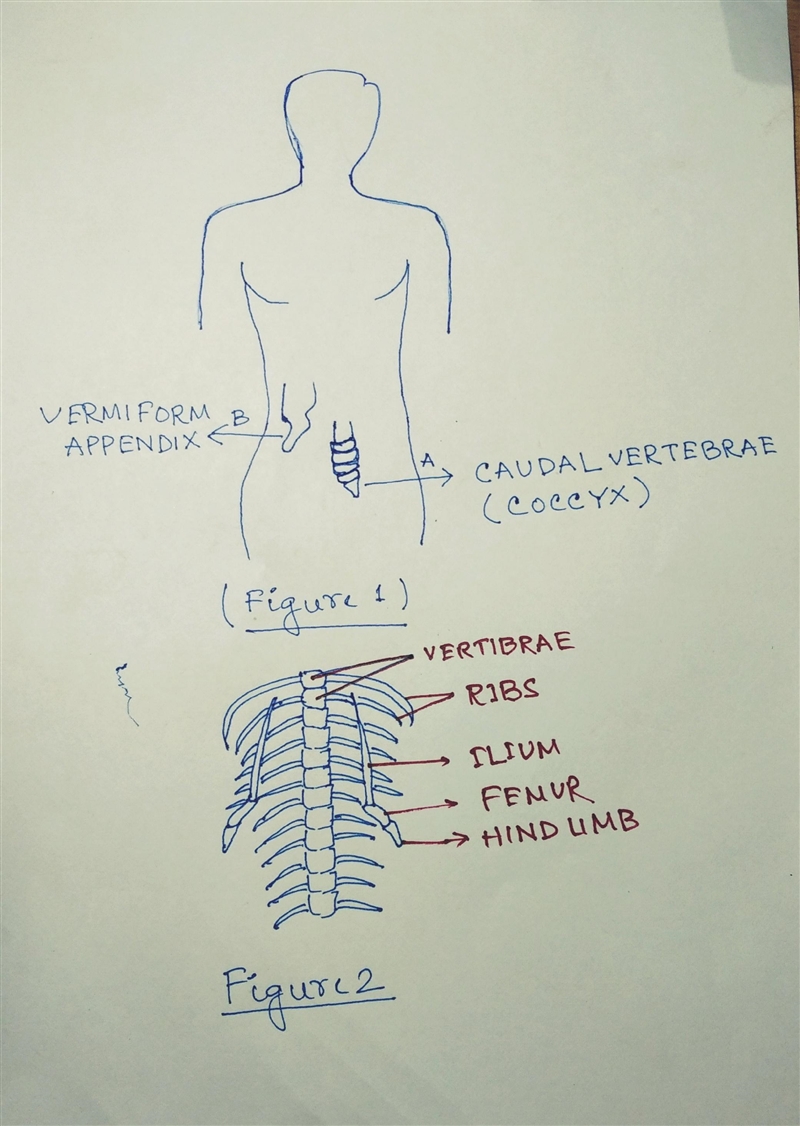 VERMIFORM
APPENDIX
B
A
CAUDAL VERTEBRAE
(COCCYX)
(Figure 1)
VERTIBRAE
RIBS
ILIUM
FEMUR
HIND LIMB
Figure 2